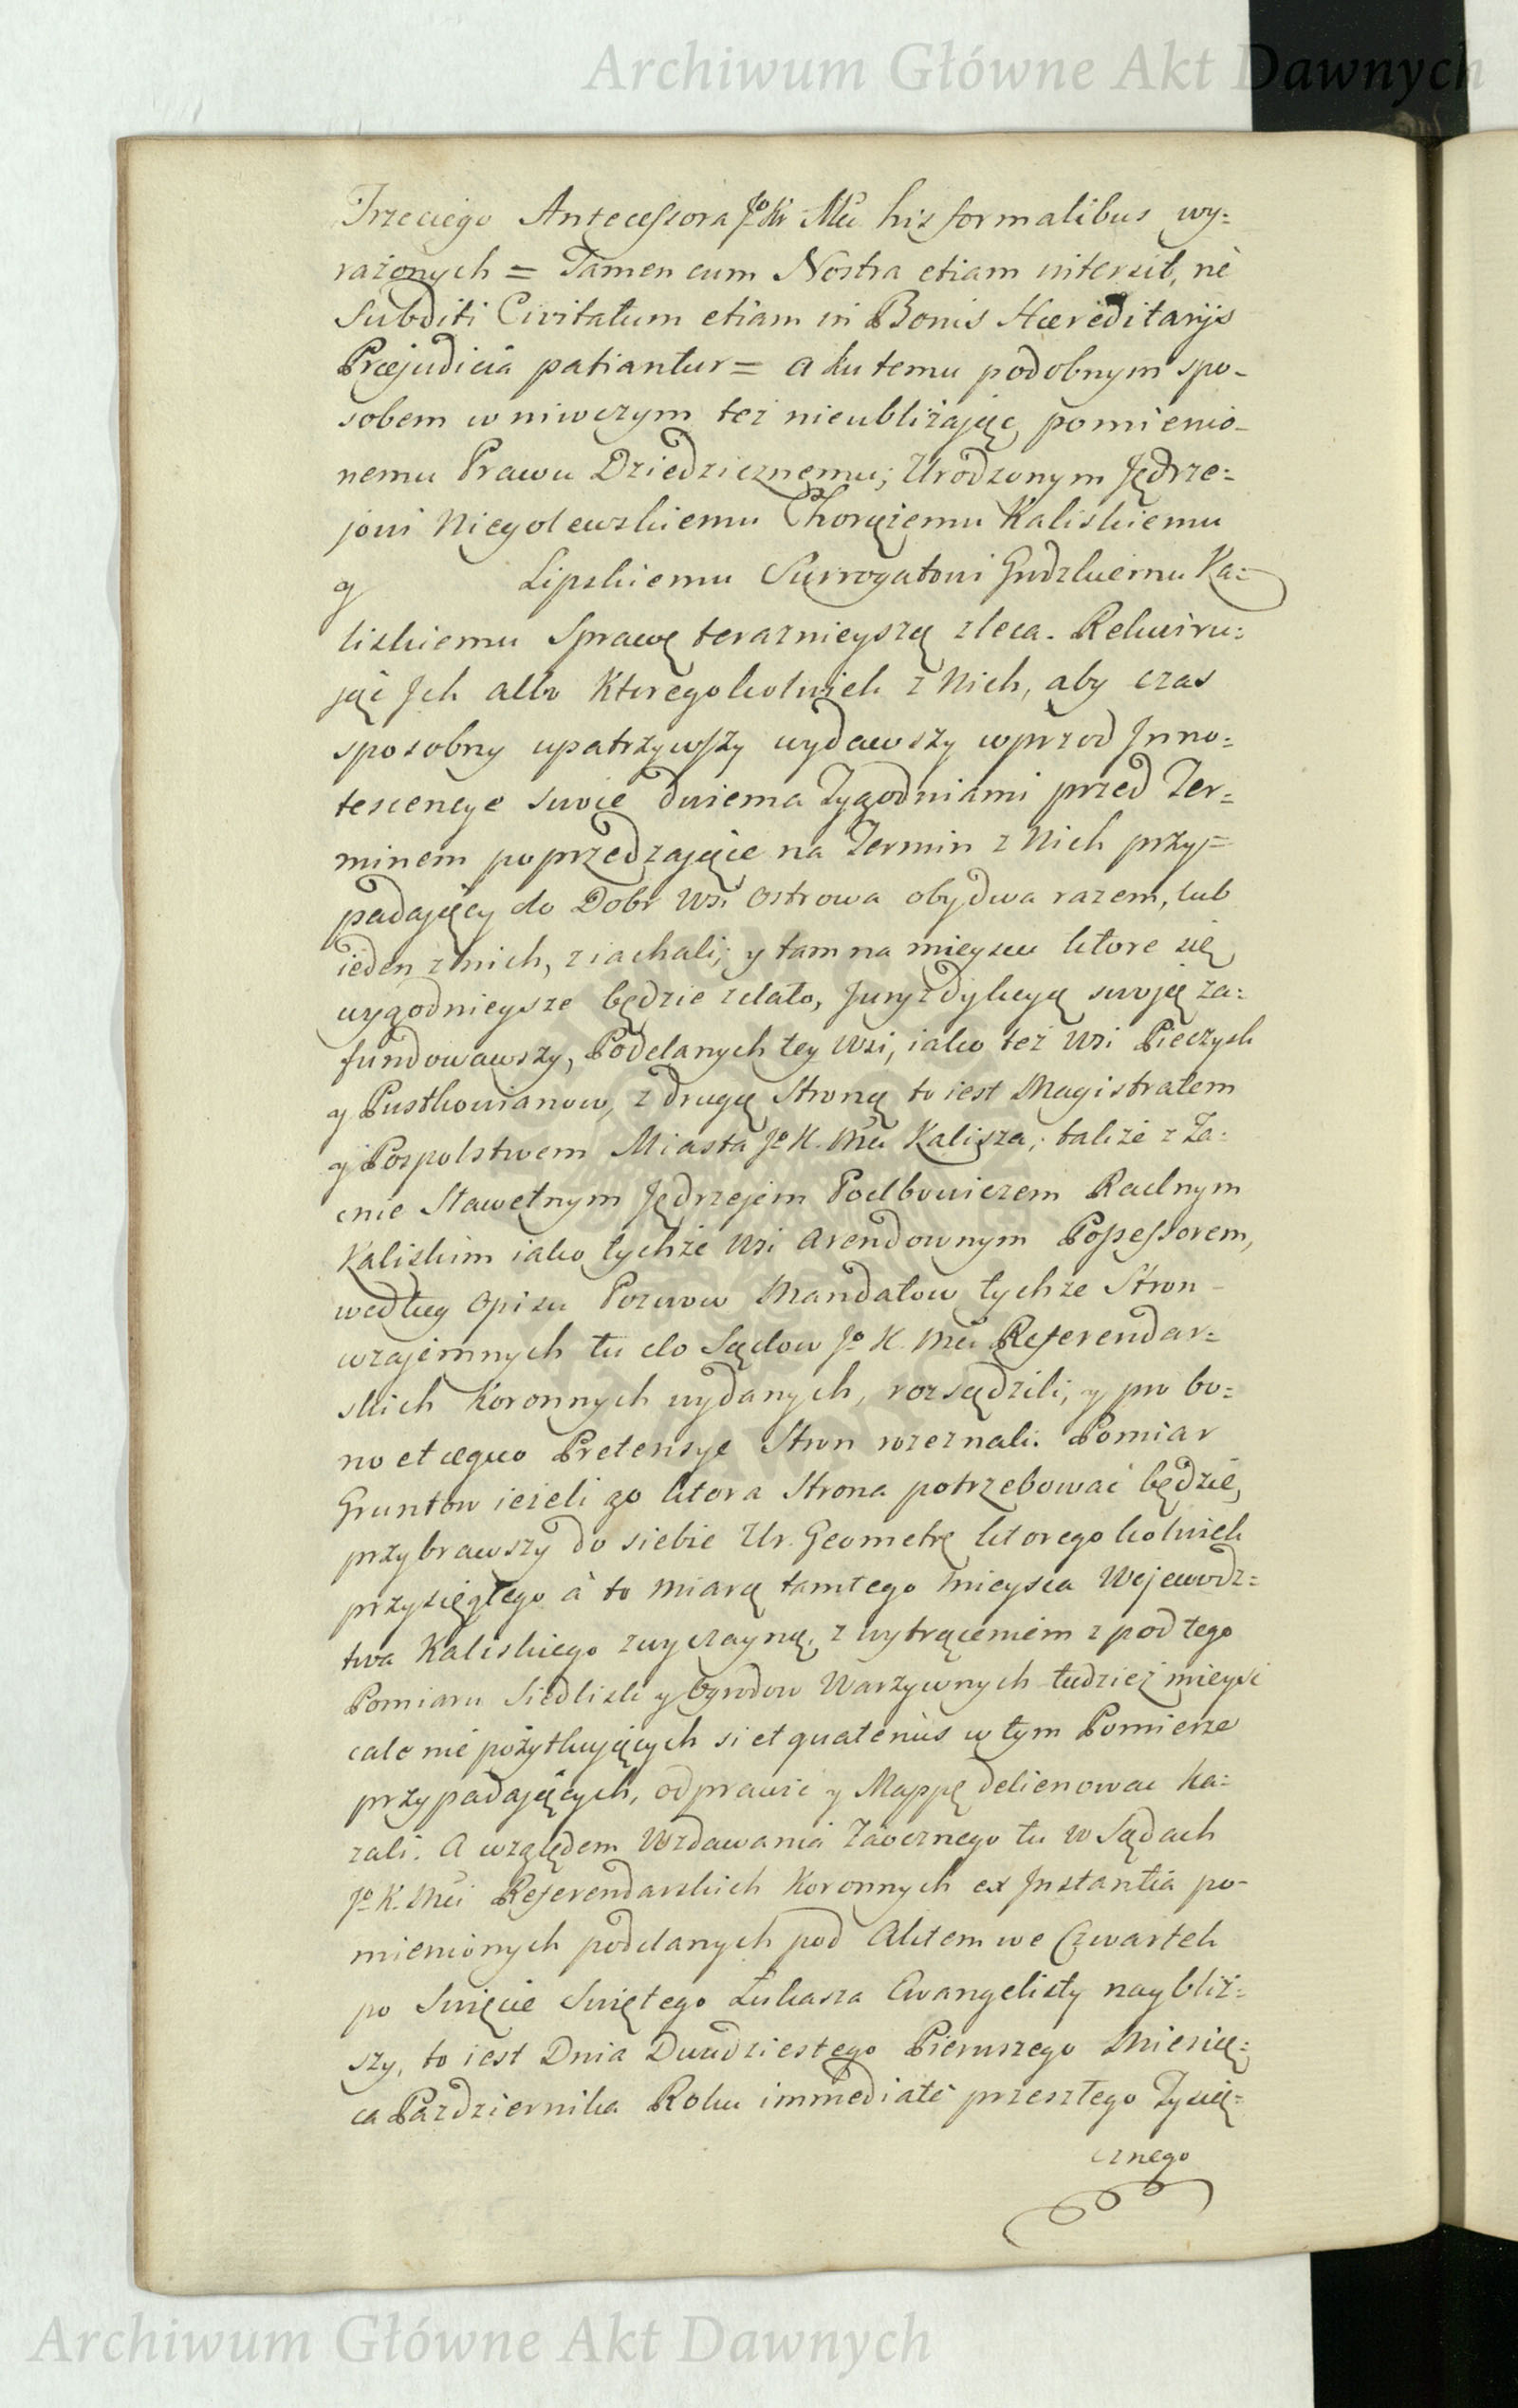 Archiwum Główne Akt Dawnych
Trzeciego Antecessora Jo Kr Mci his formalibus wy=
rażonych = Tamen cum Nostra etiam intersit, nè
Subditi Civitatum etiam in Bonis Hæreditarijs
Præjudicia patiantur = a ku temu podobnym spo-
sobem w niwczym też nieubliżaiąc pomienio-
nemu Prawu Dziedzicznemu; Urodzonym Jędrze=
jowi Niegolewskiemu Chorążemu Kaliskiemu
y Lipskiemu Surrogatowi Grodzkiemu Ka=
liskiemu Sprawę teraznieyszą zleca. Rekwiru=
jąc Jch albo Ktoregokolwiek z Nich, aby czas
sposobny upatrzywszy wydawszy wprzod Jnno=
tescencye swoie dwiema Tygodniami przed Ter=
minem poprzedzaiące na Termin z Nich przy=
padaiący do Dobr Wsi Ostrowa obydwa razem, lub
ieden z nich, ziachali; y tam na mieyscu ktore się
wygodnieysze będzie zdało, Juryzdykcyą swoię za=
fundowawszy, Poddanych tey Wsi, iako też Wsi Pieczysk
y Pustkowianow, z drugą Stroną to iest Magistratem
y Pospolstwem Miasta Jo K. Mci Kalisza; także z Za=
cnie Sławetnym Jędrzejem Podbowiczem Radnym
Kaliskim iako tychże Wsi Arendownym Possessorem,
według Opisu Pozwow Mandatow tychże Stron
wzajemnych tu do Sądow Jo K. Mci Referendar=
skich Koronnych wydanych, rozsądzili; y pro bo=
no et æquo Pretensye Stron rozeznali. Pomiar
Gruntow ieżeli go ktora Strona potrzebować będzie,
przybrawszy do siebie Ur. Geometrę ktoregokolwiek
przysięgłego à to miarą tamtego mieysca Wojewodz=
twa Kaliskiego zwyczayną, z wytrąceniem z pod tego
Pomiaru Siedlisk y Ogrodow Warzywnych tudzież mieysc
cale nie pożytkuiących si et quatenùs w tym Pomierze
przypadaiących, odprawić y Mappę delienowac ka=
zali. A względem Wzdawania Zaocznego tu w Sądach
Jo K. Mci Referendarskich Koronnych ex Jnstantia po-
mienionych poddanych pod Aktem we Czwartek
po Swięcie Swiętego Łukasza Ewangelisty naybliż=
szy, to iest Dnia Dwudziestego Pierwszego Miesią=
ca Pazdziernika Roku immediatè przeszłego Tysią=
cznego
Archiwum Główne Akt Dawnych